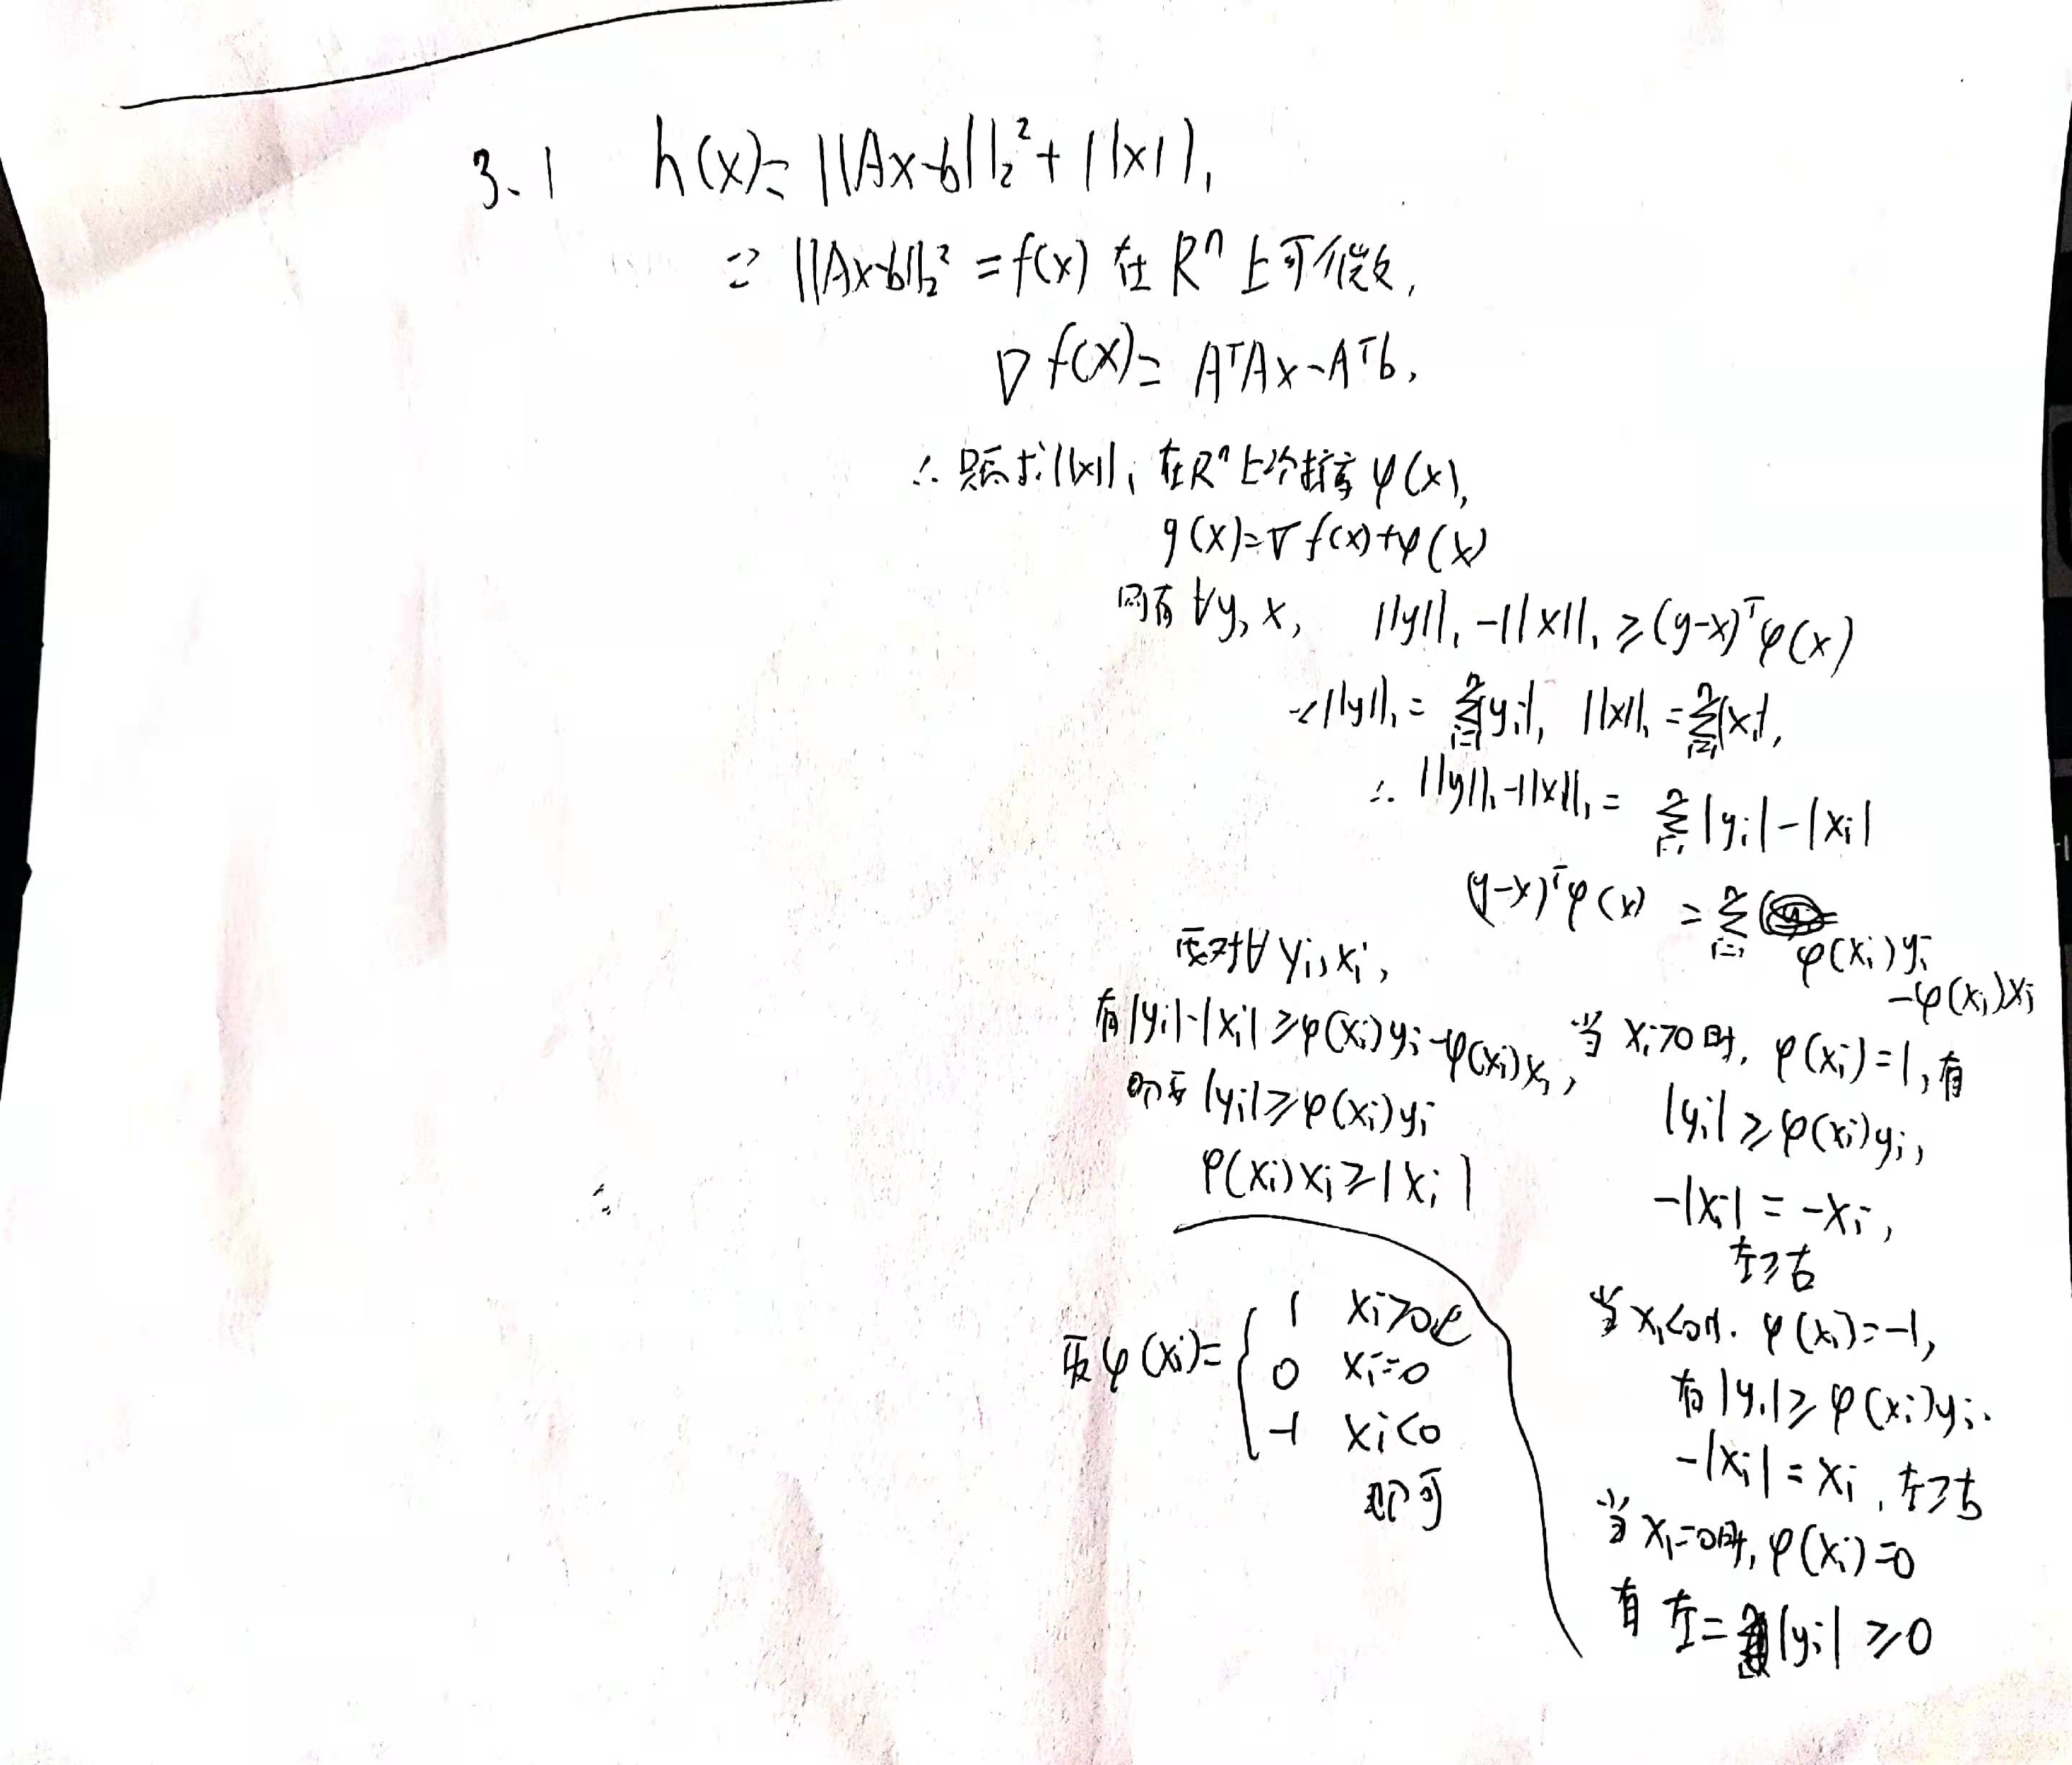 3.1 h(x)=||Ax-b||₂²+||x||₁
∵ ||Ax-b||₂² = f(x) 在 Rⁿ 上可微,
∇f(x)= AᵀAx-Aᵀb,
∴ 只需求||x||₁ 在Rⁿ上次梯度 φ(x),
g(x)=∇f(x)+φ(x)
∀y, x, ||y||₁-||x||₁≥(y-x)ᵀφ(x)
||y||₁ = Σⁿᵢ₌₁|yᵢ|, ||x||₁=Σⁿᵢ₌₁|xᵢ|,
∴ ||y||₁-||x||₁ = Σⁿᵢ₌₁ |yᵢ|-|xᵢ|
(y-x)ᵀφ(x) = Σⁿᵢ₌₁ φ(xᵢ)yᵢ
-φ(xᵢ)xᵢ
要对∀ yᵢ, xᵢ,
有|yᵢ|-|xᵢ|≥φ(xᵢ)yᵢ-φ(xᵢ)xᵢ,
即要|yᵢ|≥φ(xᵢ)yᵢ
φ(xᵢ)xᵢ≥|xᵢ|
取φ(xᵢ)={ 1 xᵢ>0
0 xᵢ=0
-1 xᵢ<0
即可
当 xᵢ>0时, φ(xᵢ)=1, 有
|yᵢ|≥φ(xᵢ)yᵢ,
-|xᵢ|=-xᵢ,
左≥右
当xᵢ<0时. φ(xᵢ)=-1,
有|yᵢ|≥φ(xᵢ)yᵢ.
-|xᵢ|=xᵢ, 左≥右
当xᵢ=0时, φ(xᵢ)=0
有 左=|yᵢ|≥0